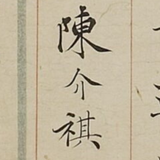 陳介祺